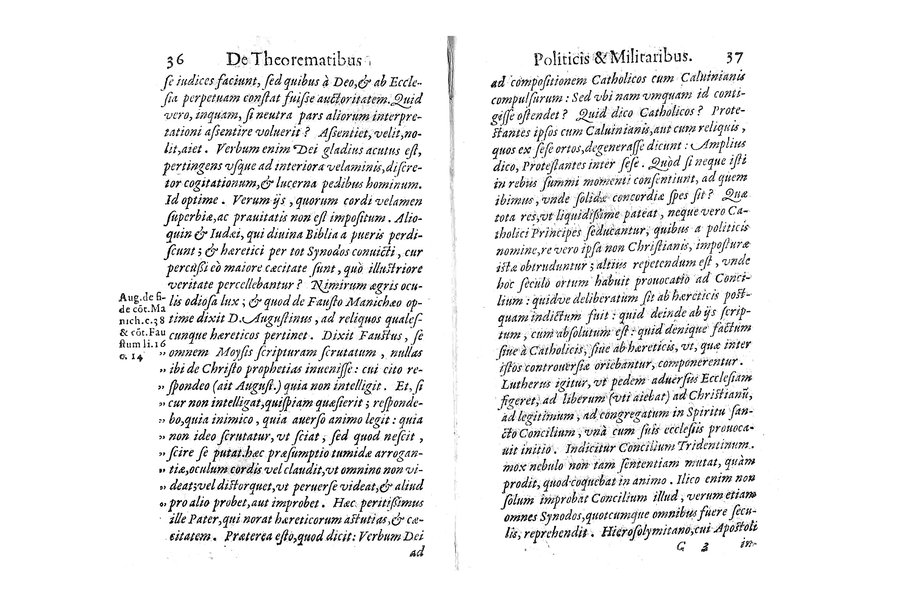 36 De Theorematibus
se iudices faciunt, sed quibus à Deo,& ab Eccle-
sia perpetuam constat fuisse auctoritatem. Quid
vero, inquam, si neutra pars aliorum interpre-
tationi assentire voluerit? Assentiet, velit, no-
lit, aiet. Verbum enim Dei gladius acutus est,
pertingens vsque ad interiora velaminis, discre-
tor cogitationum,& lucerna pedibus hominum.
Id optime. Verum ijs, quorum cordi velamen
superbiæ, ac prauitatis non est impositum. Alio-
quin & Iudæi, qui diuina Biblia a pueris perdi-
scunt; & hæretici per tot Synodos conuicti, cur
percussi eò maiore cæcitate sunt, quò illustriore
veritate percellebantur? Nimirum ægris ocu-
lis odiosa lux; & quod de Fausto Manichæo op-
time dixit D. Augustinus, ad reliquos qualef-
cunque hæreticos pertinet. Dixit Faustus, se
omnem Moysis scripturam scrutatum, nullas
„ ibi de Christo prophetias inuenisse: cui cito re-
„ spondeo (ait August.) quia non intelligit. Et, si
„ cur non intelligat, quispiam quæsierit; responde-
„ bo, quia inimico, quia auerso animo legit: quia
„ non ideo scrutatur, vt sciat, sed quod nescit,
„ scire se putat. hæc præsumptio tumidæ arrogan-
„ tiæ, oculum cordis vel claudit, vt omnino non vi-
„ deat; vel distorquet, vt peruerse videat,& aliud
„ pro alio probet, aut improbet. Hæc peritissimus
ille Pater, qui norat hæreticorum astutias,& cæ-
citatem. Præterea esto, quod dicit: Verbum Dei
ad
Aug. de fi-
de cõt. Ma
nich. c. 38
& cõt. Fau
stum li. 16
c. 14
Politicis & Militaribus. 37
ad compositionem Catholicos cum Caluinianis
compulsurum: Sed vbi nam vmquam id conti-
gisse ostendet? Quid dico Catholicos? Prote-
stantes ipsos cum Caluinianis, aut cum reliquis,
quos ex sese ortos, degenerasse dicunt: Amplius
dico, Protestantes inter sese. Quòd si neque isti
in rebus summi momenti consentiunt, ad quem
ibimus, vnde solidæ concordiæ spes sit? Quæ
tota res, vt liquidissime pateat, neque vero Ca-
tholici Principes seducantur, quibus a politicis
nomine, re vero ipsa non Christianis, imposturæ
istæ obtruduntur; altius repetendum est, vnde
hoc seculo ortum habuit prouocatio ad Conci-
lium: quidve deliberatum sit ab hæreticis post-
quam indictum fuit: quid deinde ab ijs scrip-
tum, cum absolutum est: quid denique factum
siue à Catholicis, siue ab hæreticis, vt, quæ inter
istos controuersiæ oriebantur, componerentur.
Lutherus igitur, vt pedem aduersus Ecclesiam
figeret, ad liberum (vti aiebat) ad Christianũ,
ad legitimum, ad congregatum in Spiritu san-
cto Concilium, vnà cum suis ecclesijs prouoca-
uit initio. Indicitur Concilium Tridentinum.
mox nebulo non tam sententiam mutat, quàm
prodit, quod coquebat in animo. Ilico enim non
solum improbat Concilium illud, verum etiam
omnes Synodos, quotcumque omnibus fuere secu-
lis, reprehendit. Hierosolymitano, cui Apostoli
C 3 in-